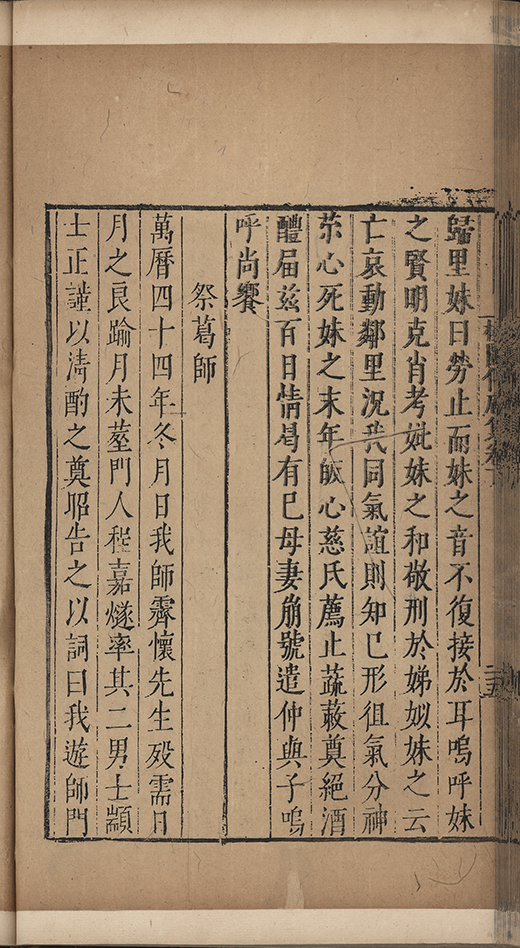 歸里妹曰勞止而妹之音不復接於耳嗚呼妹
之賢明克肖考妣妹之和敬刑於娣姒妹之云
亡哀動鄰里況我同氣誼則知已形徂氣分神
茶心死妹之末年皈心慈氏薦止蔬蔌奠絕酒
醴届兹百日情曷有已母妻崩號遣仲與子嗚
呼尚饗
祭葛師
萬曆四十四年冬月日我師霽懷先生歿需日
月之良踰月未塟門人程嘉燧率其二男士顓
士正謹以清酌之奠昭告之以詞曰我遊師門